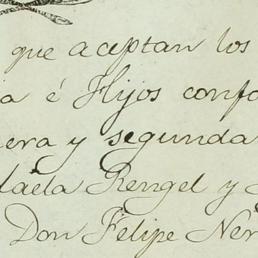 que aceptan los
a é Hijos confo
era y segunda
faela Rengel y
Don Felipe Ner